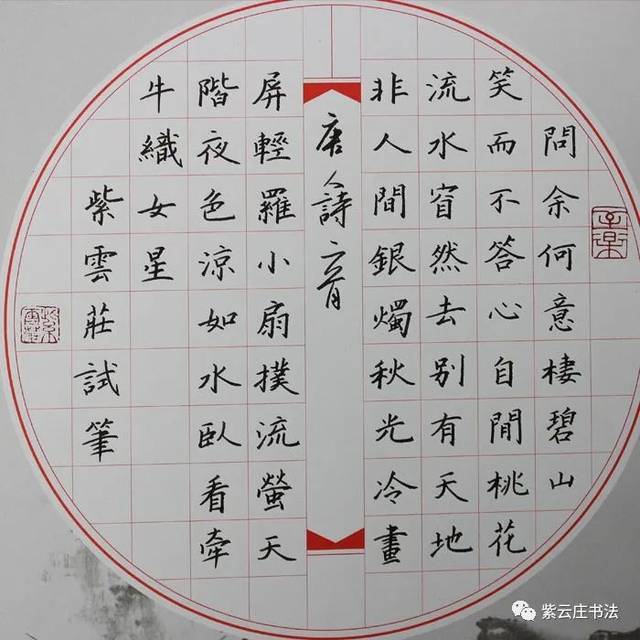 問余何意棲碧山
笑而不答心自閒桃花
流水窅然去别有天地
非人間銀燭秋光冷畫
唐詩二首
屏輕羅小扇撲流螢天
階夜色涼如水臥看牽
牛織女星
紫雲莊試筆
紫云庄书法